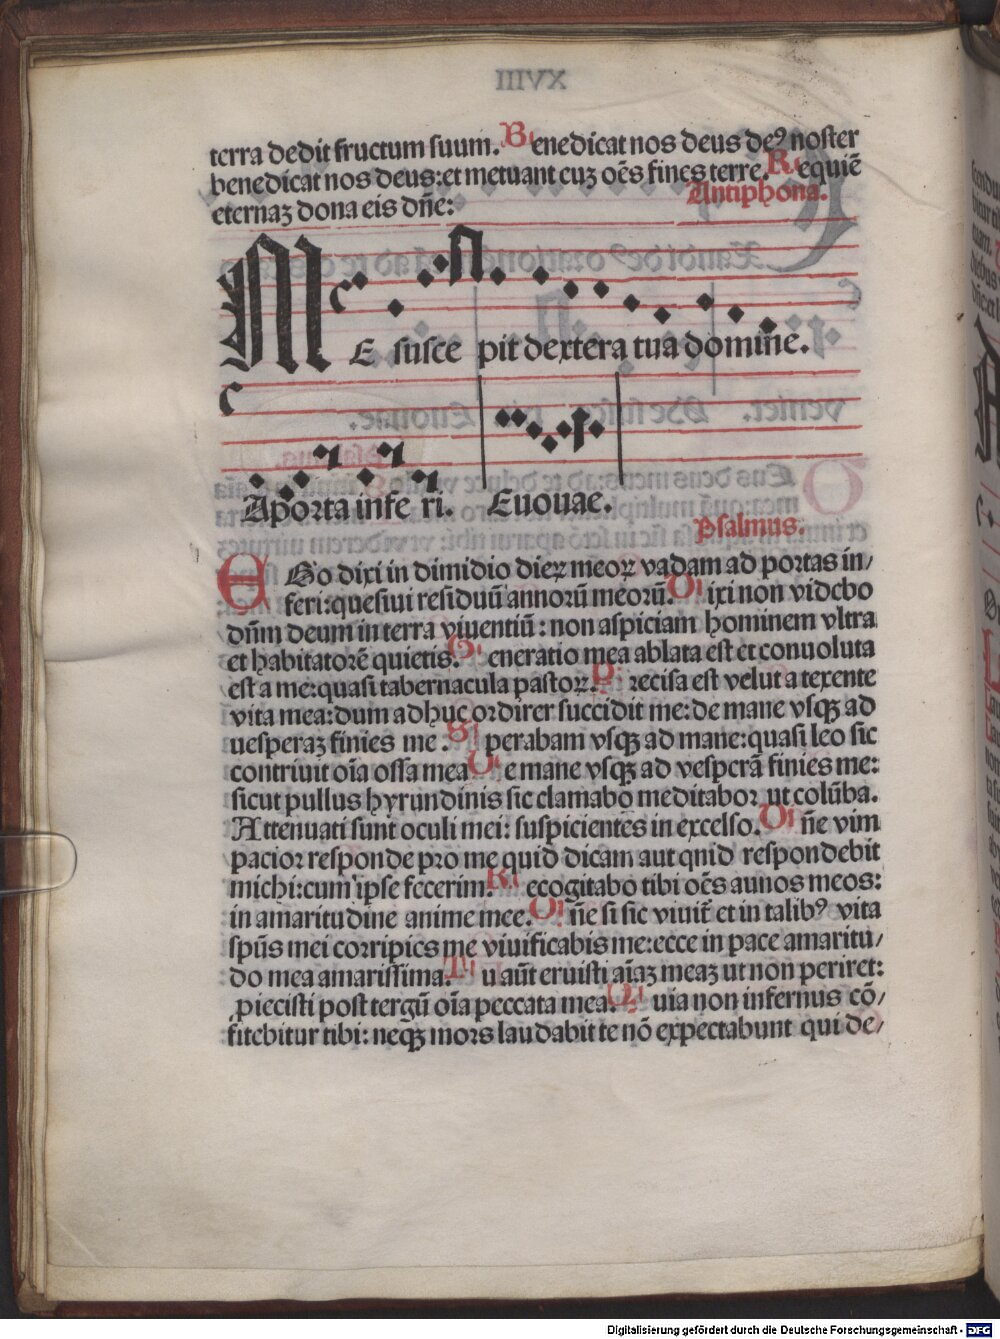 terra dedit fructum suum. Benedicat nos deus deꝰ noster
benedicat nos deus: et metuant euȝ oēs fines terre. Requiē
eternaȝ dona eis dn̄e: Antiphona.
ME susce pit dextera tua domine.
A porta infe ri. Euouae.
Psalmus.
EGo dixi in dimidio dieꝝ meoꝝ vadam ad portas in/
feri: quesiui residuū annorū meorū. Dixi non videbo
dn̄m deum in terra viuentiū: non aspiciam hominem vltra
et habitatorē quietis. Generatio mea ablata est et conuoluta
est a me: quasi tabernacula pastoꝝ. Precisa est velut a texente
vita mea: dum adhuc ordirer succidit me: de mane vsqꝫ ad
uesperaȝ finies me. Sperabam vsqꝫ ad mane: quasi leo sic
contriuit oīa ossa mea De mane vsqꝫ ad vesperā finies me:
sicut pullus hyrundinis sic clamabo meditabor ut colūba.
Attenuati sunt oculi mei: suspicientes in excelso. Dn̄e vim
pacior responde pro me quid dicam aut qnid respondebit
michi: cum ipse fecerim. Recogitabo tibi oēs annos meos:
in amaritudine anime mee. Dn̄e si sic viuit̄ et in talibꝰ vita
sp̄us mei corripies me viuificabis me: ecce in pace amaritu/
do mea amarissima. Tu aūt eruisti aīaȝ meaȝ ut non periret:
piecisti post tergū oīa peccata mea. Quia non infernus cō/
fitebitur tibi: neqꝫ mors laudabit te nō expectabunt qui de/
XVIII
Digitalisierung gefördert durch die Deutsche Forschungsgemeinschaft - DFG